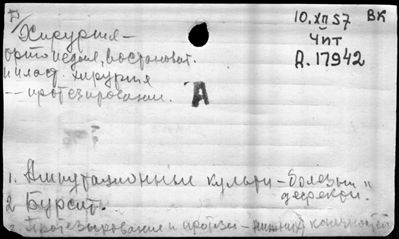 Хирургия –
ортопедия, востановат.
и пласт. хирургия
– протезировании.
10.XII 57 ВК
Чит
Д.17942
А
1. Ампутационные культи – болезни и
дефекты.
2 Бурсит.
3 Протезирование и протезы – нижних конечностей